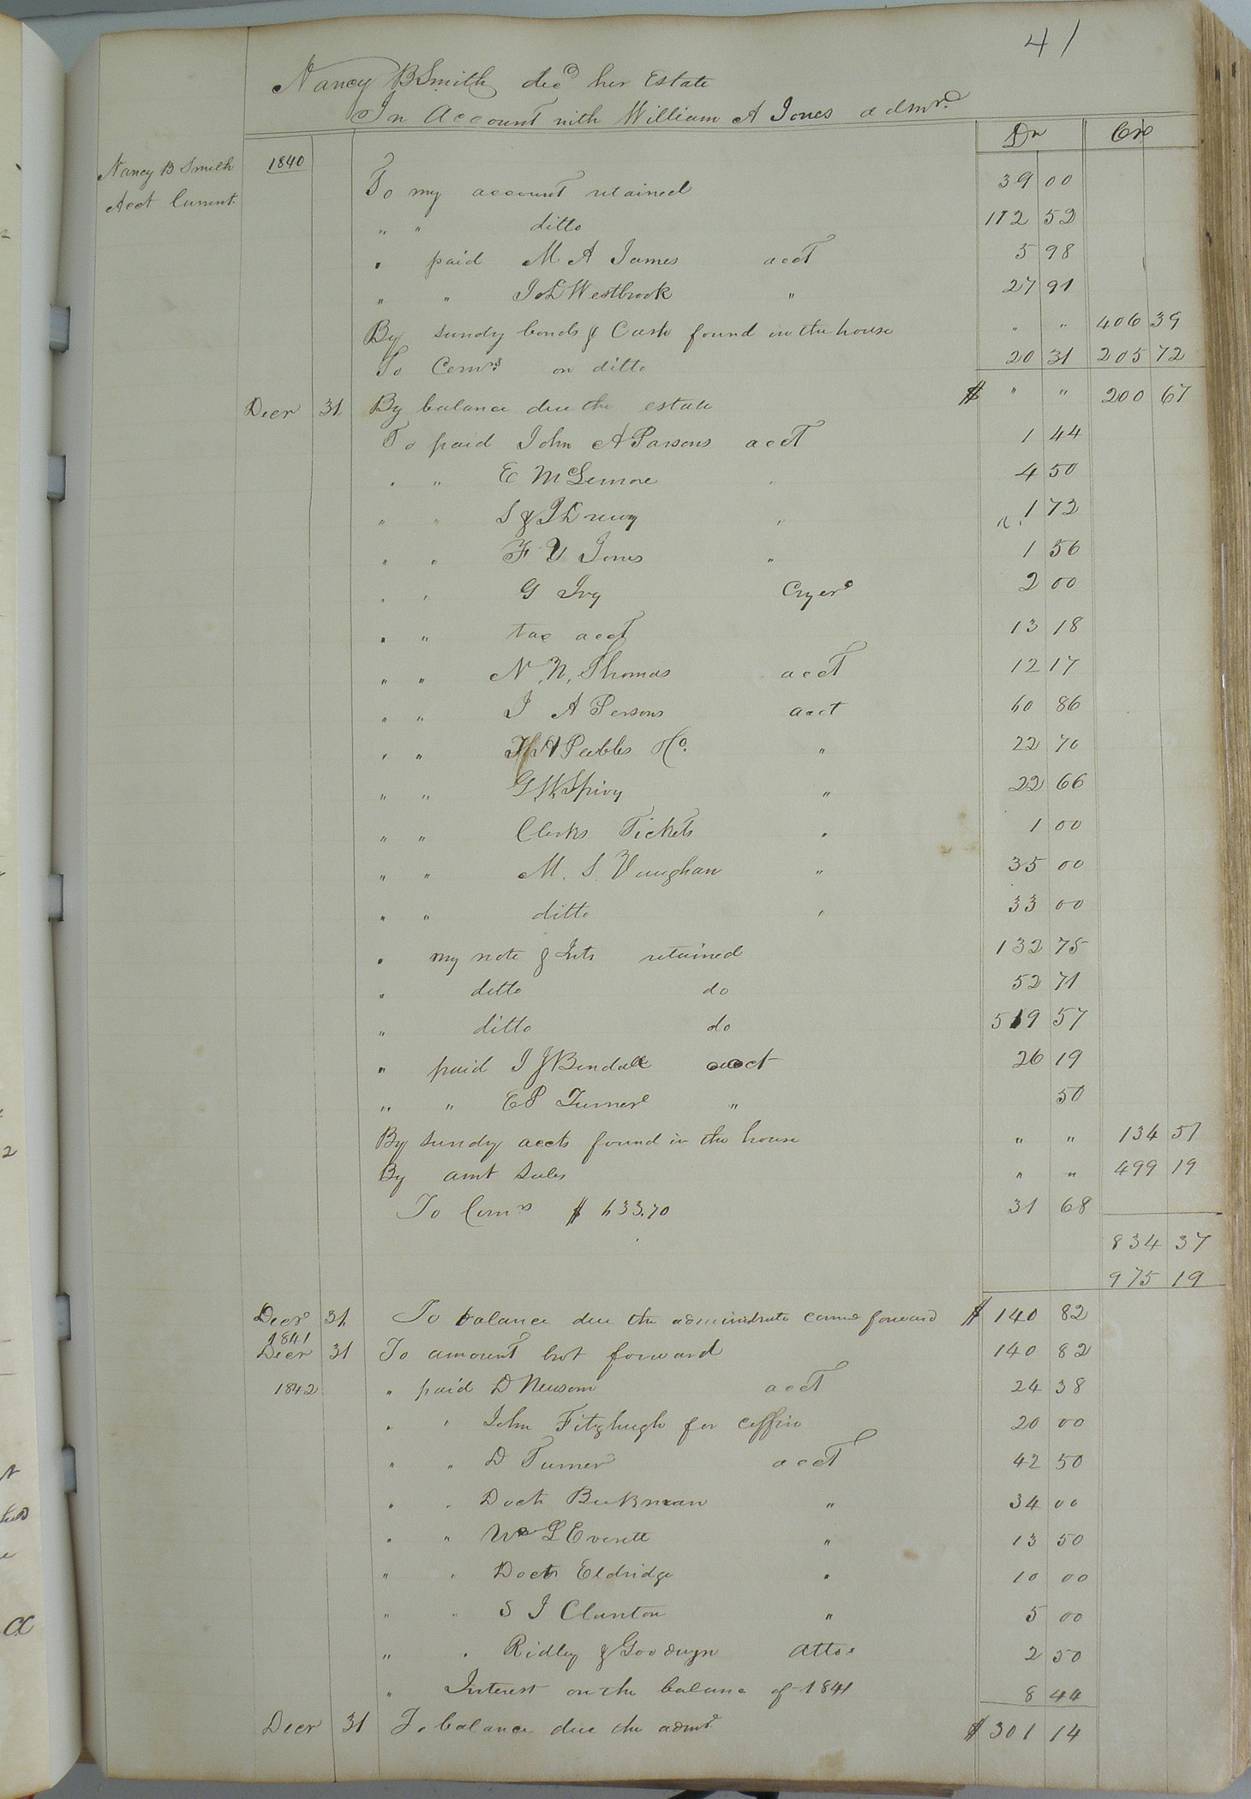 41
Nancy B Smith decd her Estate
In Account with William A Jones admr.
Dr Cr
Nancy B Smith
Acct Current
1840
To my account retained 39 00
" " ditto 112 52
" paid M A James acct 5 98
" " J & D Westbrook " 27 91
By sundry bonds & Cash found in the house " " 406 39
To Comrs on ditto 20 31 205 72
Decr 31 By balance due the estate $ " " 200 67
To paid John A Parsons acct 1 44
" " E McLemore " 4 50
" " S & J Drewry " 1 72
" " F Y Jones " 1 56
" " G Ivy Cryer 2 00
" " tax acct 13 18
" " N. N. Thomas acct 12 17
" " J A Persons acct 60 86
" " Peebles & Co. " 22 70
" " G W Spivy " 22 66
" " Clerks Tickets " 1 00
" " M. S. Vaughan " 35 00
" " ditto " 33 00
" my note & Ints retained 132 75
" ditto do 52 71
" ditto do 519 57
" paid J J Bendall acct 26 19
" " E P Turner " 50
By sundry accts found in the house " " 134 51
By amt sales " " 499 19
To Comrs $ 633.70 31 68
834 37
975 19
Decr 31 To balance due the administrator carried forward $ 140 82
1841
Decr 31 To amount brot forward 140 82
1842 " paid D Newsom acct 24 38
" " John Fitzhugh for coffin 20 00
" " D Turner acct 42 50
" " Doctr Beckman " 34 00
" " Wm L Everett " 13 50
" " Doctr Eldridge " 10 00
" " S J Clanton " 5 00
" " Ridley & Goodwyn Attos 2 50
" Interest on the balance of 1841 8 44
Decr 31 To balance due the admr $ 301 14